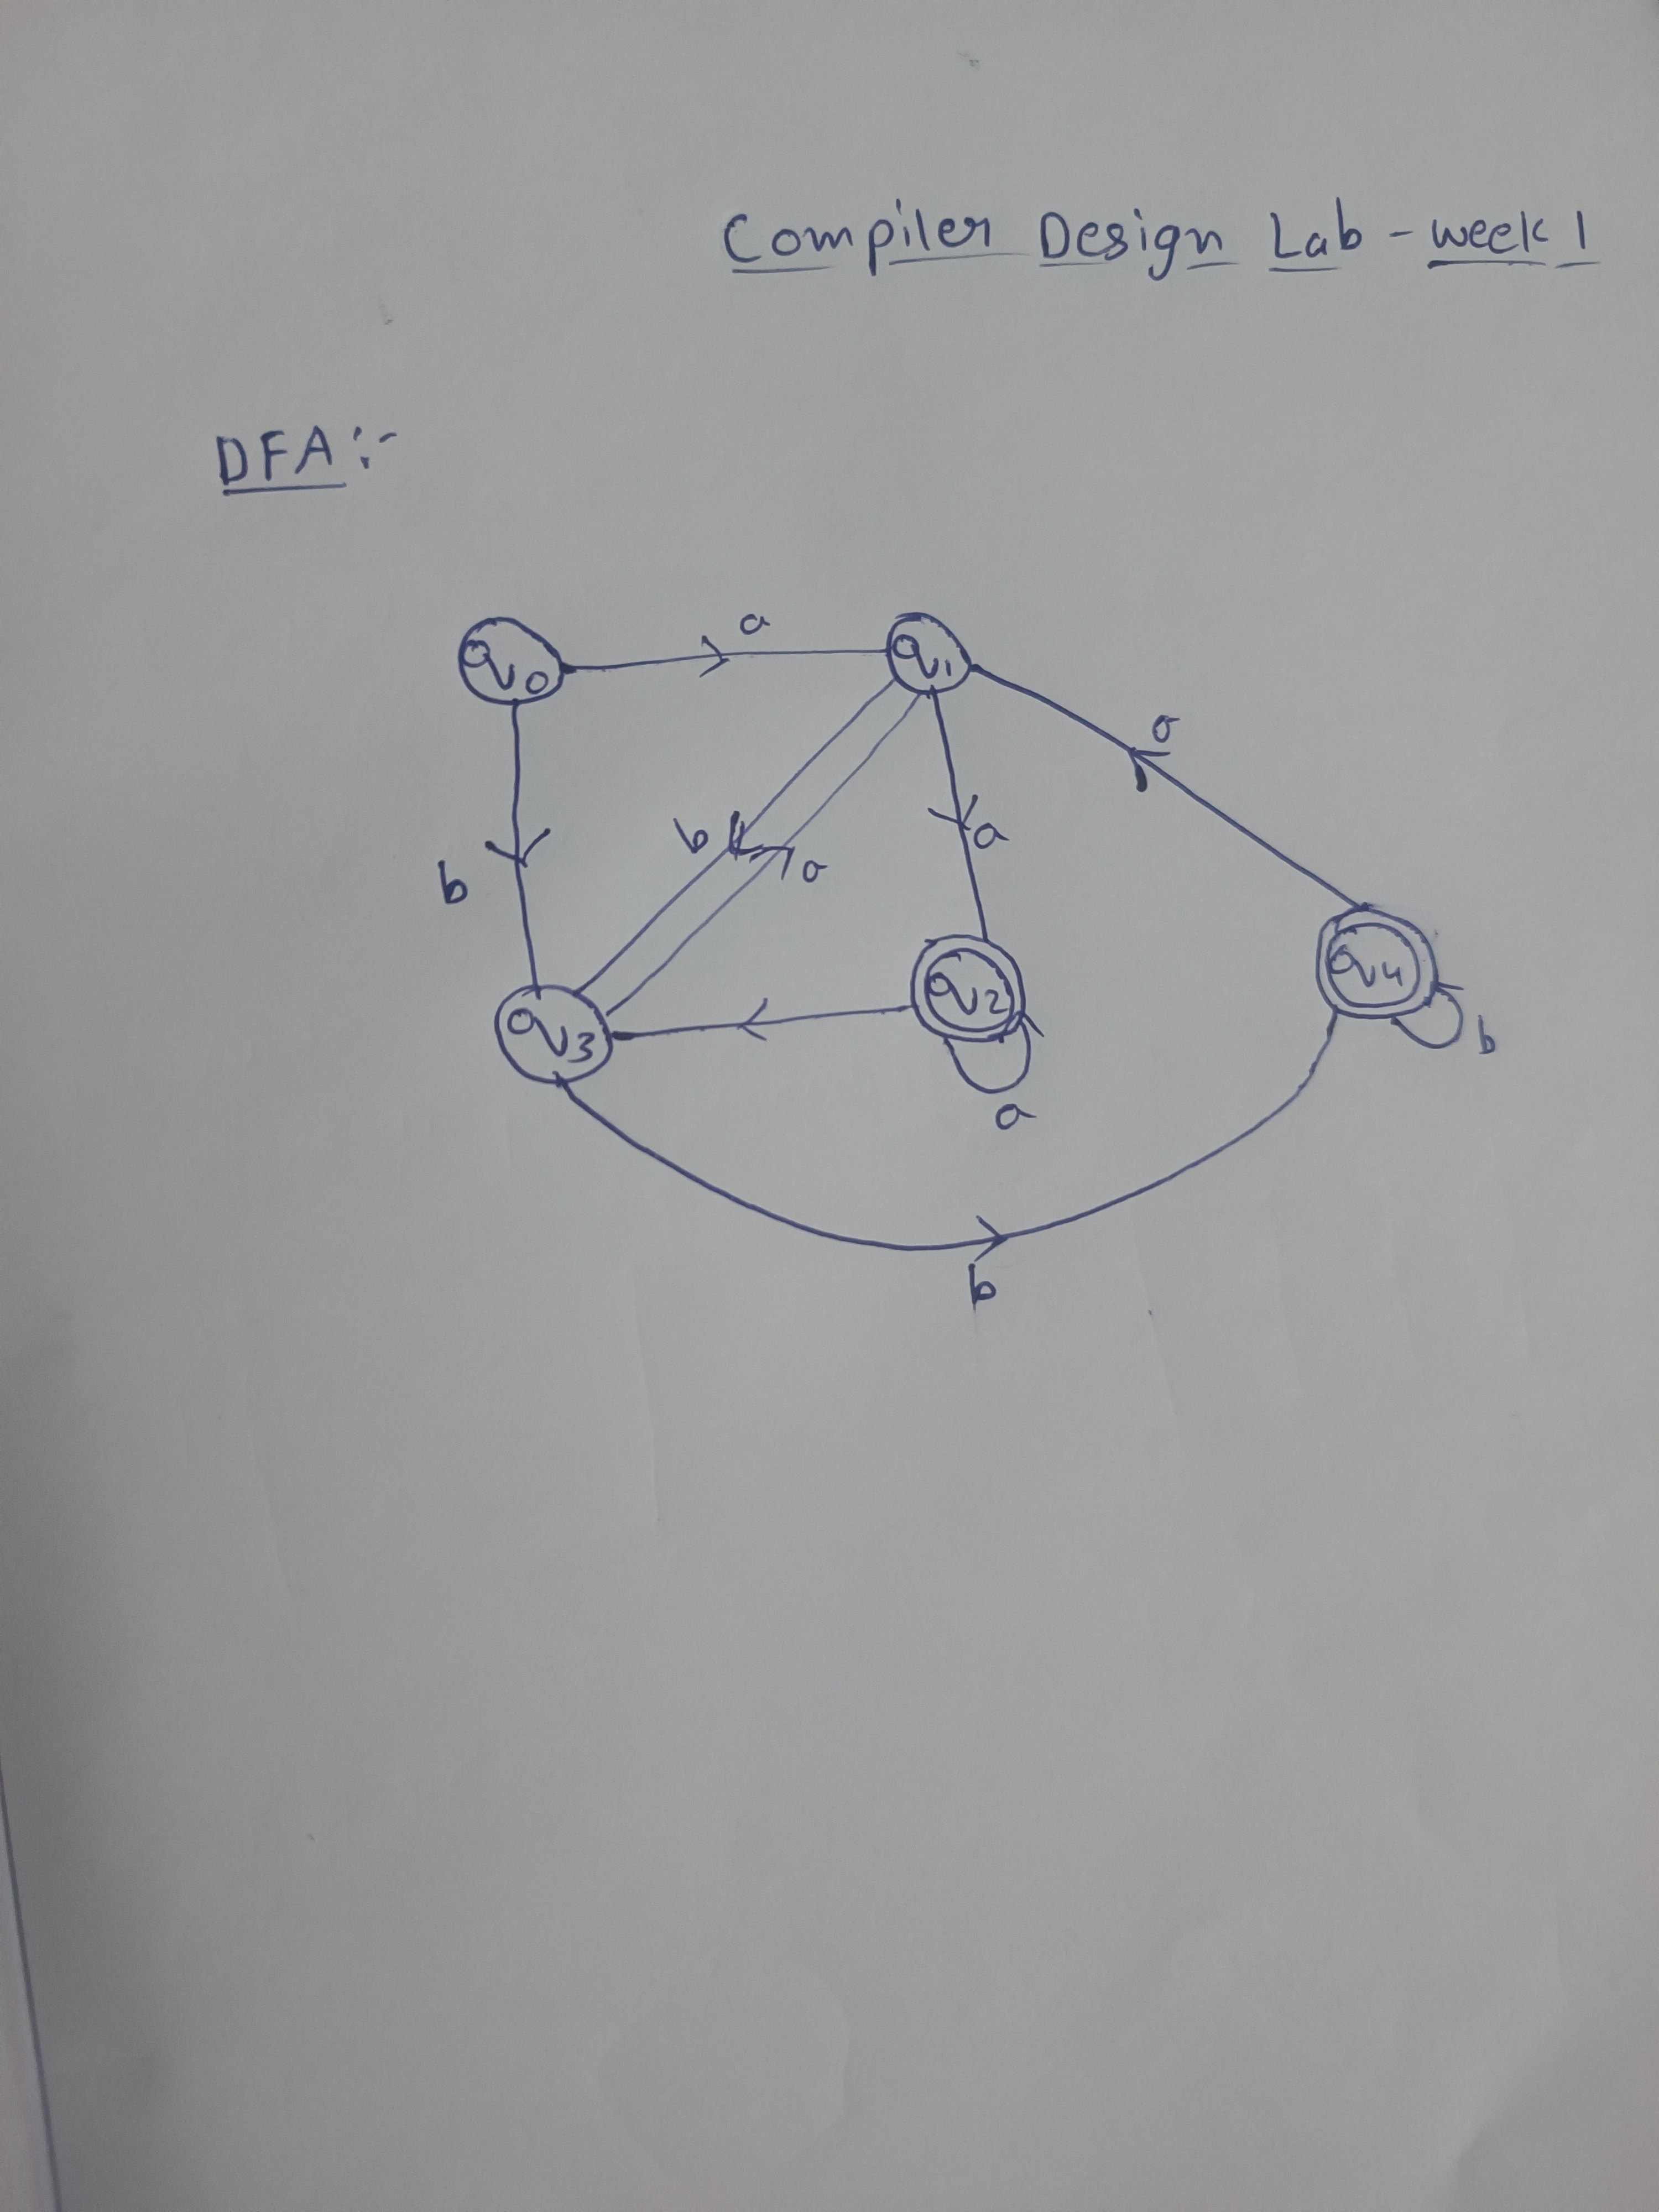 Compiler Design Lab - week 1
DFA :-
a
q0
q1
a
b
a
a
b
q4
q2
q3
b
a
b